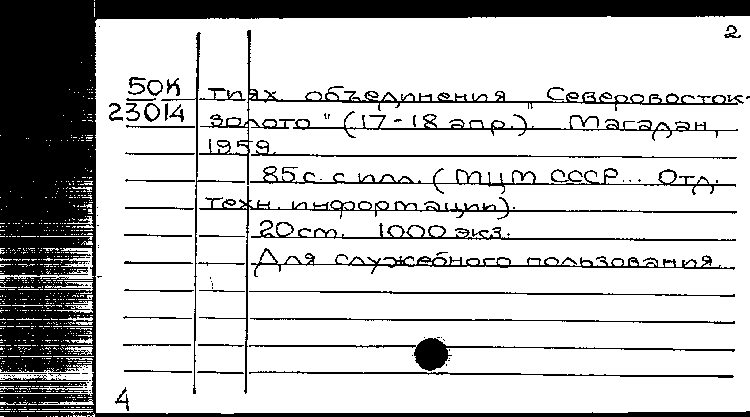 2
50К
23014
тиях объединения „Северовосток-
золото" (17-18 апр.). Магадан,
1959.
85с. с илл. (МЦМ СССР... Отд.
техн. информации).
20см. 1000 экз.
Для служебного пользования.
4